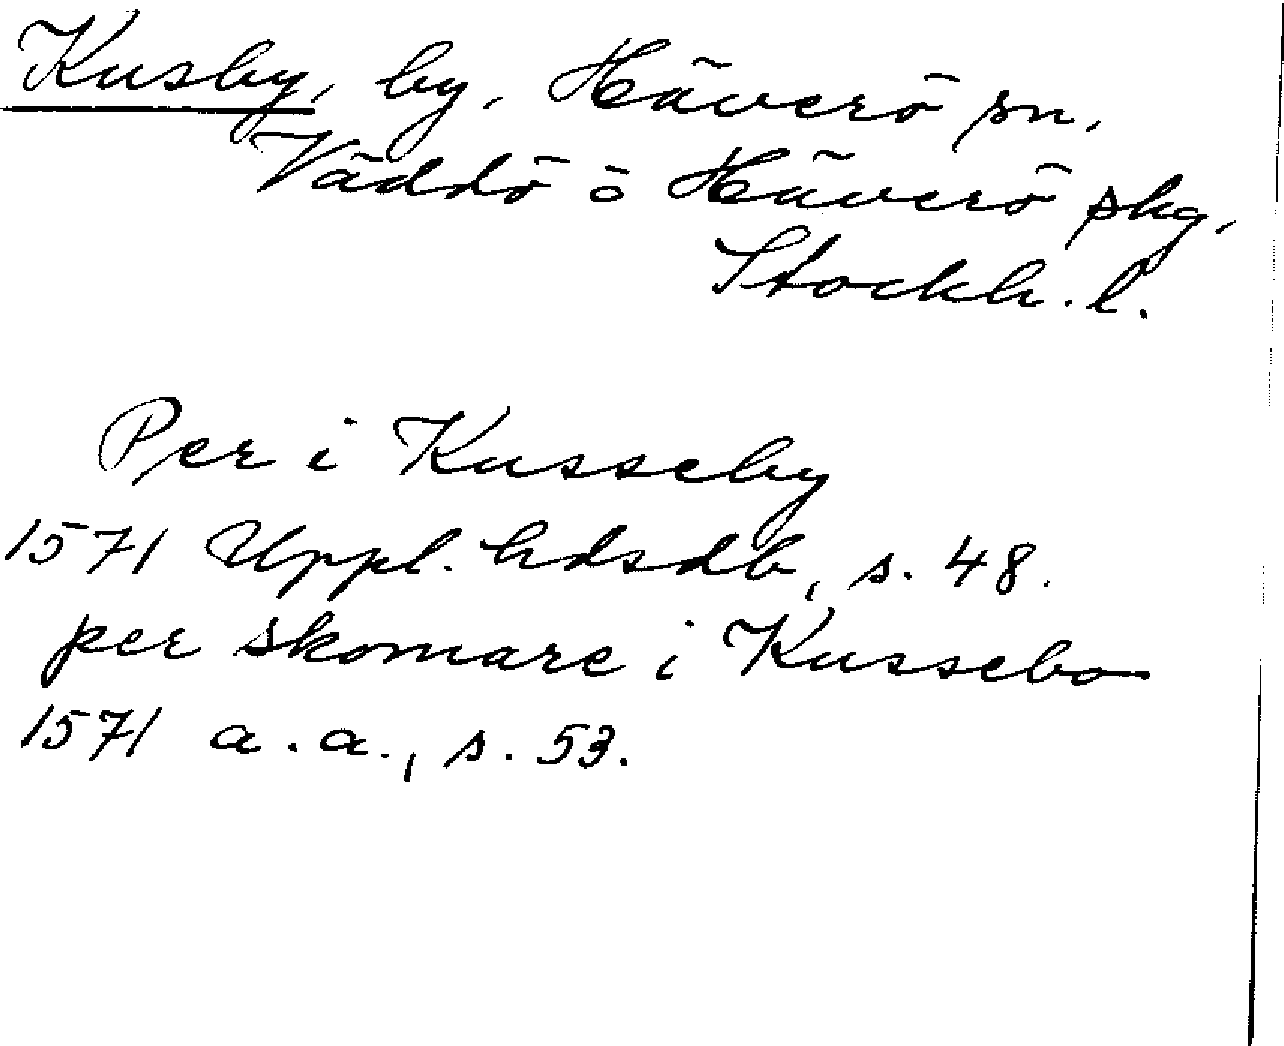 Kusby, by, Häverö sn,
Väddö o Häverö skg,
Stockh. l.
Per i Kusseby
1571 Uppl. hdsdb, s. 48.
per skomare i Kussebo
1571 a.a., s. 53.